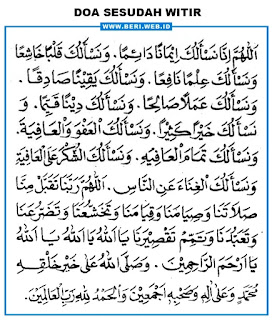 DOA SESUDAH WITIR
WWW.BERI.WEB.ID
اَللّٰهُمَّ اِنَّا نَسْأَلُكَ اِيْمَانًا دَائِمًا. وَنَسْأَلُكَ قَلْبًا خَاشِعًا
وَنَسْأَلُكَ عِلْمًا نَافِعًا. وَنَسْأَلُكَ يَقِيْنًا صَادِقًا.
وَنَسْأَلُكَ عَمَلًا صَالِحًا. وَنَسْأَلُكَ دِيْنًا قَيِّمًا. وَ
نَسْأَلُكَ خَيْرًا كَثِيْرًا. وَنَسْأَلُكَ الْعَفْوَ وَالْعَافِيَةَ.
وَنَسْأَلُكَ تَمَامَ الْعَافِيَةِ. وَنَسْأَلُكَ الشُّكْرَ عَلَى الْعَافِيَةِ
وَنَسْأَلُكَ الْغِنَاءَ عَنِ النَّاسِ. اَللّٰهُمَّ رَبَّنَا تَقَبَّلْ مِنَّا
صَلَاتَنَا وَصِيَامَنَا وَقِيَامَنَا وَتَخَشُّعَنَا وَتَضَرُّعَنَا
وَتَعَبُّدَنَا وَتَمِّمْ تَقْصِيْرَنَا يَا اَللّٰهُ يَا اَللّٰهُ يَا اَللّٰهُ
يَا اَرْحَمَ الرَّاحِمِيْنَ. وَصَلَّى اللّٰهُ عَلَى خَيْرِ خَلْقِهِ
مُحَمَّدٍ وَعَلَى اٰلِهِ وَصَحْبِهِ اَجْمَعِيْنَ وَالْحَمْدُ لِلّٰهِ رَبِّ الْعَالَمِيْنَ.